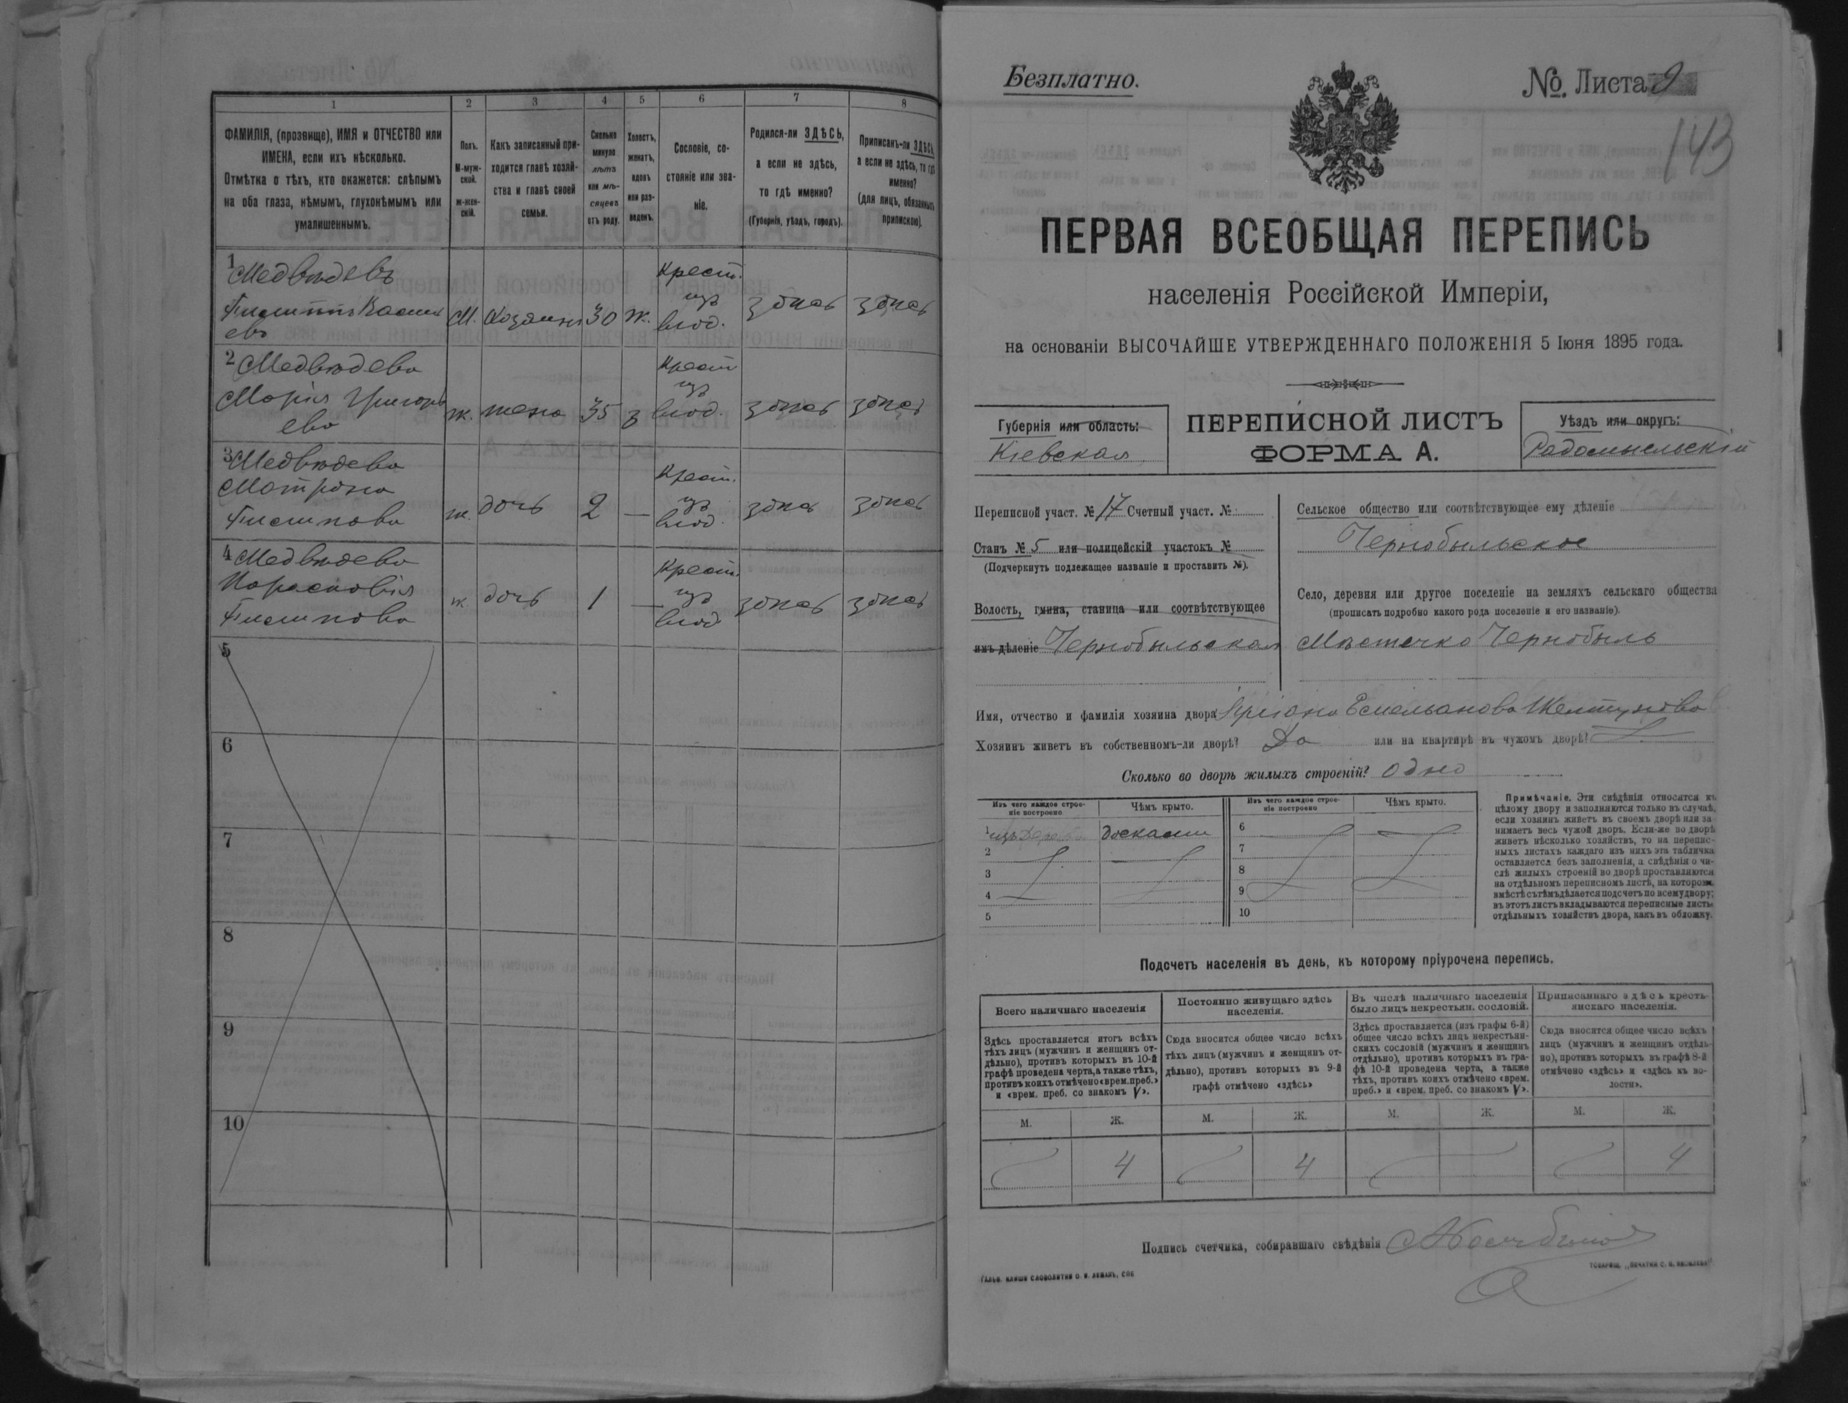 1
2
3
4
5
6
7
8
ФАМИЛІЯ, (прозвище), ИМЯ и ОТЧЕСТВО или
ИМЕНА, если ихъ нѣсколько.
Отмѣтка о тѣхъ, кто окажется: слѣпымъ
на оба глаза, нѣмымъ, глухонѣмымъ или
умалишеннымъ.
Полъ.
М-муж-
ской.
ж-жен-
скій.
Какъ записанный при-
ходится главѣ хозяй-
ства и главѣ своей
семьи.
Сколько
минуло
лѣтъ
или мѣ-
сяцевъ
отъ роду.
Холостъ,
женатъ,
вдовъ
или раз-
веденъ.
Сословіе, со-
стояніе или зва-
ніе.
Родился-ли ЗДѢСЬ,
а если не здѣсь,
то гдѣ именно?
(Губернія, уѣздъ, городъ).
Приписанъ-ли ЗДѢСЬ,
а если не здѣсь, то гдѣ
именно?
(для лицъ, обязанныхъ
припискою).
1
Медвѣдевъ
М. Хозяинъ 30 ж.
Крест.
изъ
влад.
здѣсь здѣсь
2 Медвѣдева
Марія Григорь
ева
ж. жена 35 з
Крест
изъ
влад.
здѣсь здѣсь
3 Медвѣдева
Матрона
ж. дочь 2 —
Крест.
изъ
влад.
здѣсь здѣсь
4 Медвѣдева
Парасковія
ж. дочь 1 —
Крест.
изъ
влад
здѣсь здѣсь
5
6
7
8
9
10
Безплатно.
№ Листа
143
ПЕРВАЯ ВСЕОБЩАЯ ПЕРЕПИСЬ
населенія Россійской Имперіи,
на основаніи ВЫСОЧАЙШЕ УТВЕРЖДЕННАГО ПОЛОЖЕНІЯ 5 Іюня 1895 года.
Губернія или область:
Кіевская
ПЕРЕПИСНОЙ ЛИСТЪ
ФОРМА А.
Уѣздъ или округъ:
Радомысльскій
Переписной участ. № 17 Счетный участ. №
Станъ № 5 или полицейскій участокъ №
(Подчеркнуть подлежащее названіе и проставить №).
Волость, гмина, станица или соотвѣтствующее
имъ дѣленіе Чернобыльская
Сельское общество или соотвѣтствующее ему дѣленіе
Чернобыльское
Село, деревня или другое поселеніе на земляхъ сельскаго общества
(прописать подробно какого рода поселеніе и его названіе).
Мѣстечко Чернобыль
Имя, отчество и фамилія хозяина двора Емельянова
Хозяинъ живетъ въ собственномъ-ли дворѣ? Да или на квартирѣ въ чужомъ дворѣ?
Сколько во дворѣ жилыхъ строеній? одно
Изъ чего каждое строе-
ніе построено
Чѣмъ крыто.
Изъ чего каждое строе-
ніе построено
Чѣмъ крыто.
1 изъ досками
2
3
4
5
6
7
8
9
10
Примѣчаніе. Эти свѣдѣнія относятся къ
цѣлому двору и заполняются только въ случаѣ,
если хозяинъ живетъ въ своемъ дворѣ или за
нимаетъ весь чужой дворъ. Если-же во дворѣ
живетъ нѣсколько хозяйствъ, то на перепис-
ныхъ листахъ каждаго изъ нихъ эта табличка
оставляется безъ заполненія, а свѣдѣнія о чи-
слѣ жилыхъ строеній во дворѣ проставляются
на отдѣльномъ переписномъ листѣ, на которомъ
вмѣстѣ съ тѣмъ дѣлается подсчетъ по всему двору;
въ этотъ листъ вкладываются переписные листы
отдѣльныхъ хозяйствъ двора, какъ въ обложку.
Подсчетъ населенія въ день, къ которому пріурочена перепись.
Всего наличнаго населенія
Здѣсь проставляется итогъ всѣхъ
тѣхъ лицъ (мужчинъ и женщинъ от-
дѣльно), противъ которыхъ въ 10-й
графѣ проведена черта, а также тѣхъ,
противъ коихъ отмѣчено «врем. преб.»
и «врем. преб. со знакомъ V».
Постоянно живущаго здѣсь
населенія.
Сюда вносится общее число всѣхъ
тѣхъ лицъ (мужчинъ и женщинъ от-
дѣльно), противъ которыхъ въ 9-й
графѣ отмѣчено «здѣсь»
Въ числѣ наличнаго населенія
было лицъ некрестьян. сословій.
Здѣсь проставляется (изъ графы 6-й)
общее число всѣхъ лицъ некрестьян-
скихъ сословій (мужчинъ и женщинъ
отдѣльно), противъ которыхъ въ гра-
фѣ 10-й проведена черта, а также
тѣхъ, противъ коихъ отмѣчено «врем.
преб.» и «врем. преб. со знакомъ V».
Приписаннаго здѣсь кресть-
янскаго населенія.
Сюда вносится общее число всѣхъ
лицъ (мужчинъ и женщинъ отдѣль-
но), противъ которыхъ въ графѣ 8-й
отмѣчено «здѣсь» и «здѣсь въ во-
лости».
М. Ж. М. Ж. М. Ж. М. Ж.
4 4 4
Подпись счетчика, собиравшаго свѣдѣнія
ГАЛЬВ. КЛИШИ СЛОВОЛИТНИ О. И. ЛЕМАНЪ, СПБ
ТОВАРИЩ. „ПЕЧАТНИ С. П. ЯКОВЛЕВА"